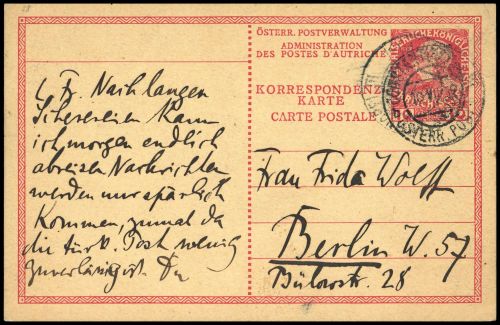 ÖSTERR. POSTVERWALTUNG
ADMINISTRATION
DES POSTES D'AUTRICHE
KORRESPONDENZ-
KARTE
CARTE POSTALE
L. Fr. Nach langen
kann
ich morgen endlich
abreisen Nachrichten
werden nur spärlich
kommen, zumal da
die türk. Post wenig
zuverlässig ist.
Frau Frida Wolff
Berlin W. 57
Bülowstr. 28